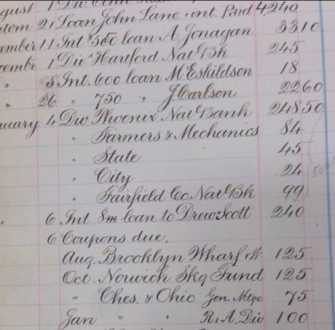 gust 1 Div
tem 2 Loan John Lane, int. Paid 4240
ember 11 Int 560 loan A Jonagan 3310
cembr 1 Div Hartford Nat Bk 245
" 8 Int. 600 loan M Eskildson 18
" 26 " 750 " J Carlson 2260
nuary 4 Div Phoenix Nat Bank 24850
" Farmers & Mechanics 84
" State 45
" City 24 50
" Fairfield Co. Nat Bk 99
" 6 Int 8m loan to Drew Scott 240
6 Coupons due.
Aug. Brooklyn Wharf 125
Oct. Norwich Skg Fund 125
" Ches. & Ohio Gen. Mtge 75
Jan " " R. & A. Div 100